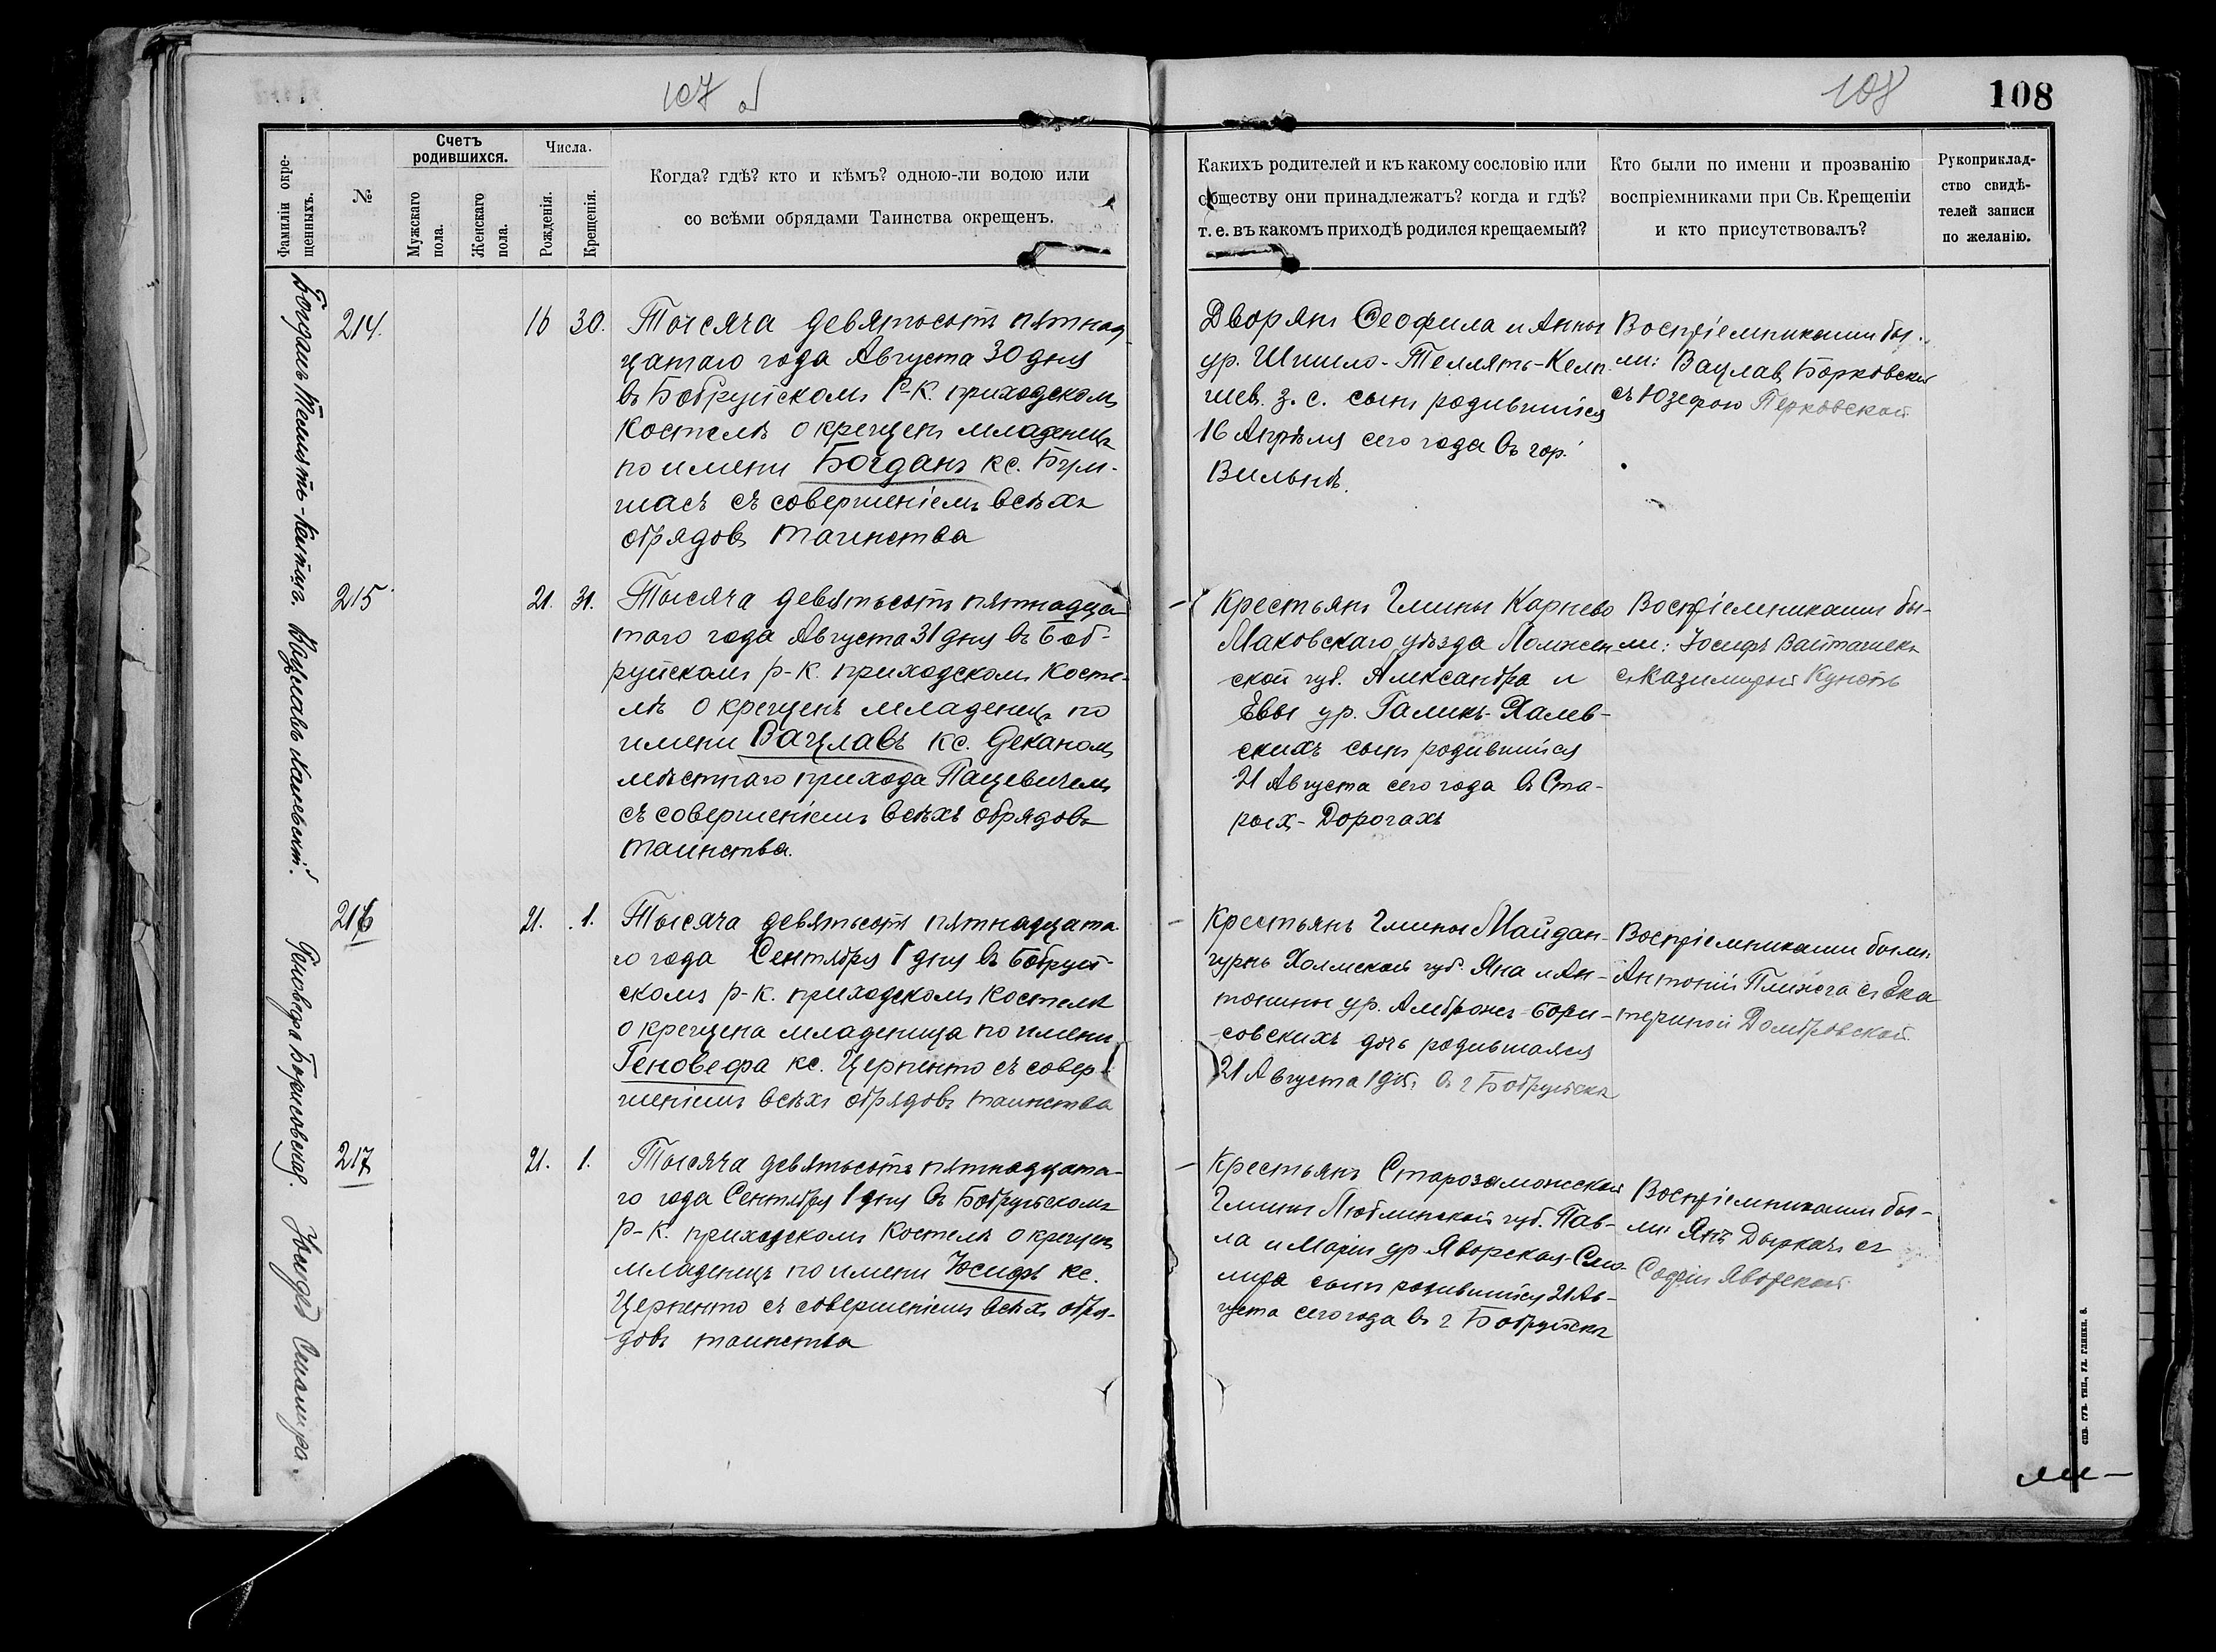 107 об
Фамиліи окре-
щенныхъ.
№
Счетъ
родившихся.
Мужскаго
пола.
Женскаго
пола.
Числа.
Рожденія.
Крещенія.
Когда? гдѣ? кто и кѣмъ? одною-ли водою или
со всѣми обрядами Таинства окрещенъ.
Богданъ Теллятъ-
214.
16
30.
Тысяча девятьсотъ пятнад-
цатаго года Августа 30 дня
въ Бобруйскомъ Р-К. приходскомъ
Костелѣ окрещенъ младенецъ
по имени Богданъ кс.
съ совершеніемъ всѣхъ
обрядовъ таинства
Вацлавъ Халевскій.
215
21.
31.
Тысяча девятьсотъ пятнадца-
таго года Августа 31 дня въ Боб-
руйскомъ р-к. приходскомъ Косте-
лѣ окрещенъ младенецъ по
имени Вацлавъ кс. Деканомъ
мѣстнаго прихода Пацевичемъ
съ совершеніемъ всѣхъ обрядовъ
таинства.
Геновефа Борисовская.
216
21.
1.
Тысяча девятьсотъ пятнадцата-
го года Сентября 1 дня въ Бобруй-
скомъ р-к. приходскомъ Костелѣ
окрещена младеница по имени
Геновефа кс. Церпенто съ совер-
шеніемъ всѣхъ обрядовъ таинства
Юсифъ
217
21.
1.
Тысяча девятьсотъ пятнадцата-
го года Сентября 1 дня въ Бобруйскомъ
р-к. приходскомъ Костелѣ окрещенъ
младенецъ по имени Юсифъ кс.
Церпенто съ совершеніемъ всѣхъ обря-
довъ таинства
108
108
Какихъ родителей и къ какому сословію или
обществу они принадлежатъ? когда и гдѣ?
т. е. въ какомъ приходѣ родился крещаемый?
Кто были по имени и прозванію
воспріемниками при Св. Крещеніи
и кто присутствовалъ?
Рукоприклад-
ство свидѣ-
телей записи
по желанію.
Дворянъ Ѳеофила и Анны
ур. Шишло-Теллятъ-
з. с. сынъ родившійся
16 Апрѣля сего года въ гор.
Вильнѣ.
Воспріемниками бы-
ли: Вацлавъ Борковскій
съ Юзефою
Крестьянъ Гмины Карнево
Маковскаго уѣзда Ломжин-
ской губ. Александра и
Евы ур. Галикъ-Халев-
скихъ сынъ родившійся
21 Августа сего года въ Ста-
рыхъ-Дорогахъ
Воспріемниками бы-
ли: Іосифъ
съ Казимирой
Крестьянъ Гмины Майдан-
Холмской губ. Яна и Ан-
тонины ур. Амброжъ-Бори-
совскихъ дочь родившаяся
21 Августа 1915 г. въ г Бобруйскѣ
Воспріемниками были:
Антоній съ Ека
териной Домбровской
Крестьянъ Старозамойской
Гмины Люблинской губ. Пав-
ла и Маріи ур Яворская-
сынъ родившійся 21 Ав-
густа сего года въ г Бобруйскѣ
Воспріемниками бы-
ли: Янъ Дыркачъ съ
Софіи Яворской
СПБ. ГУБ. ТИП., УЛ. ГЛИНКИ. 8.